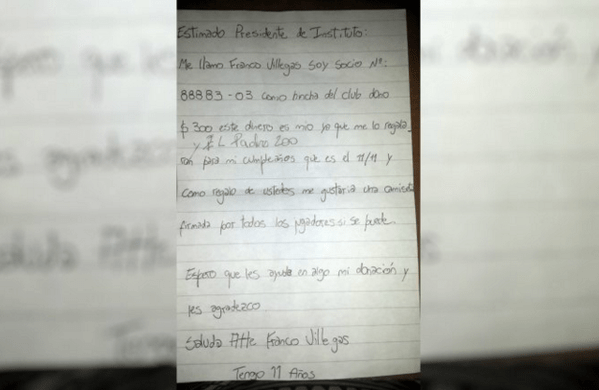 Estimado Presidente de Instituto:
Me llamo Franco Villegas Soy Socio Nº:
88883-03 como hincha del club dono
$ 300 este dinero es mio ya que me lo regala_
y EL Padre 200
ron para mi cumpleaños que es el 11/11 y
como regalo de ustedes me gustaria una camiseta
firmada por todos los jugadores si se puede.
Espero que les ayude en algo mi donación y
les agradezco.
Saluda Atte Franco Villegas
Tengo 11 Años